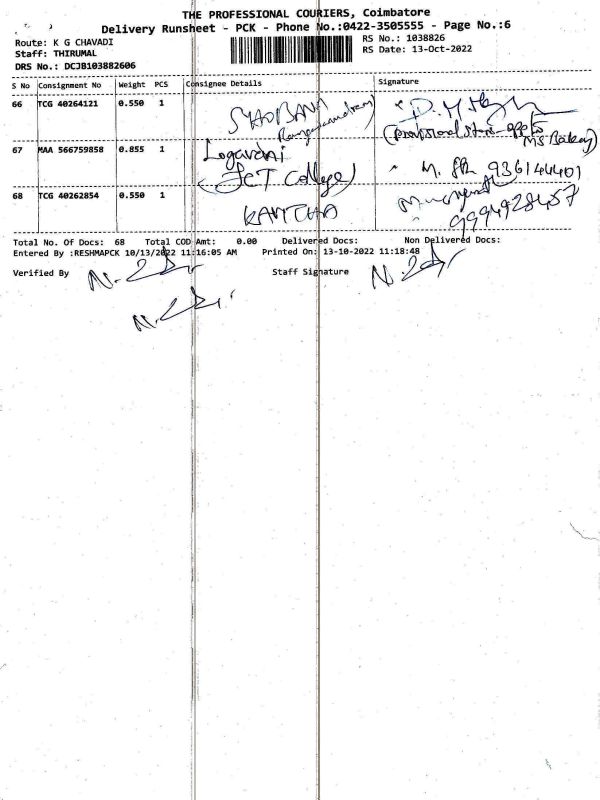 THE PROFESSIONAL COURIERS, Coimbatore
Delivery Runsheet - PCK - Phone No.:0422-3505555 - Page No.:6
Route: K G CHAVADI
Staff: THIRUMAL
DRS No.: DCJB103882606
RS No.: 1038826
RS Date: 13-Oct-2022
S No Consignment No Weight PCS Consignee Details Signature
66 TCG 40264121 0.550 1 SHOBANA
(provisional store opp to
MS Bakery)
67 MAA 566759858 0.855 1 Logavani
(JCT College) M. 9361444401
68 TCG 40262854 0.550 1 KAVITHA
9994928457
Total No. Of Docs: 68 Total COD Amt: 0.00 Delivered Docs: Non Delivered Docs:
Entered By :RESHMAPCK 10/13/2022 11:16:05 AM Printed On: 13-10-2022 11:18:48
Verified By Staff Signature